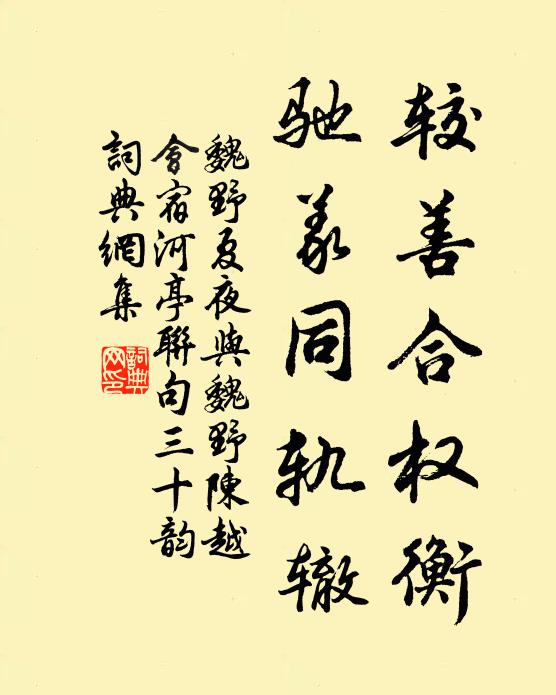 较善合权衡
驰义同轨辙
魏野夏夜与魏野陳越
會宿河亭聯句三十韵
詞典網集
詞典网印